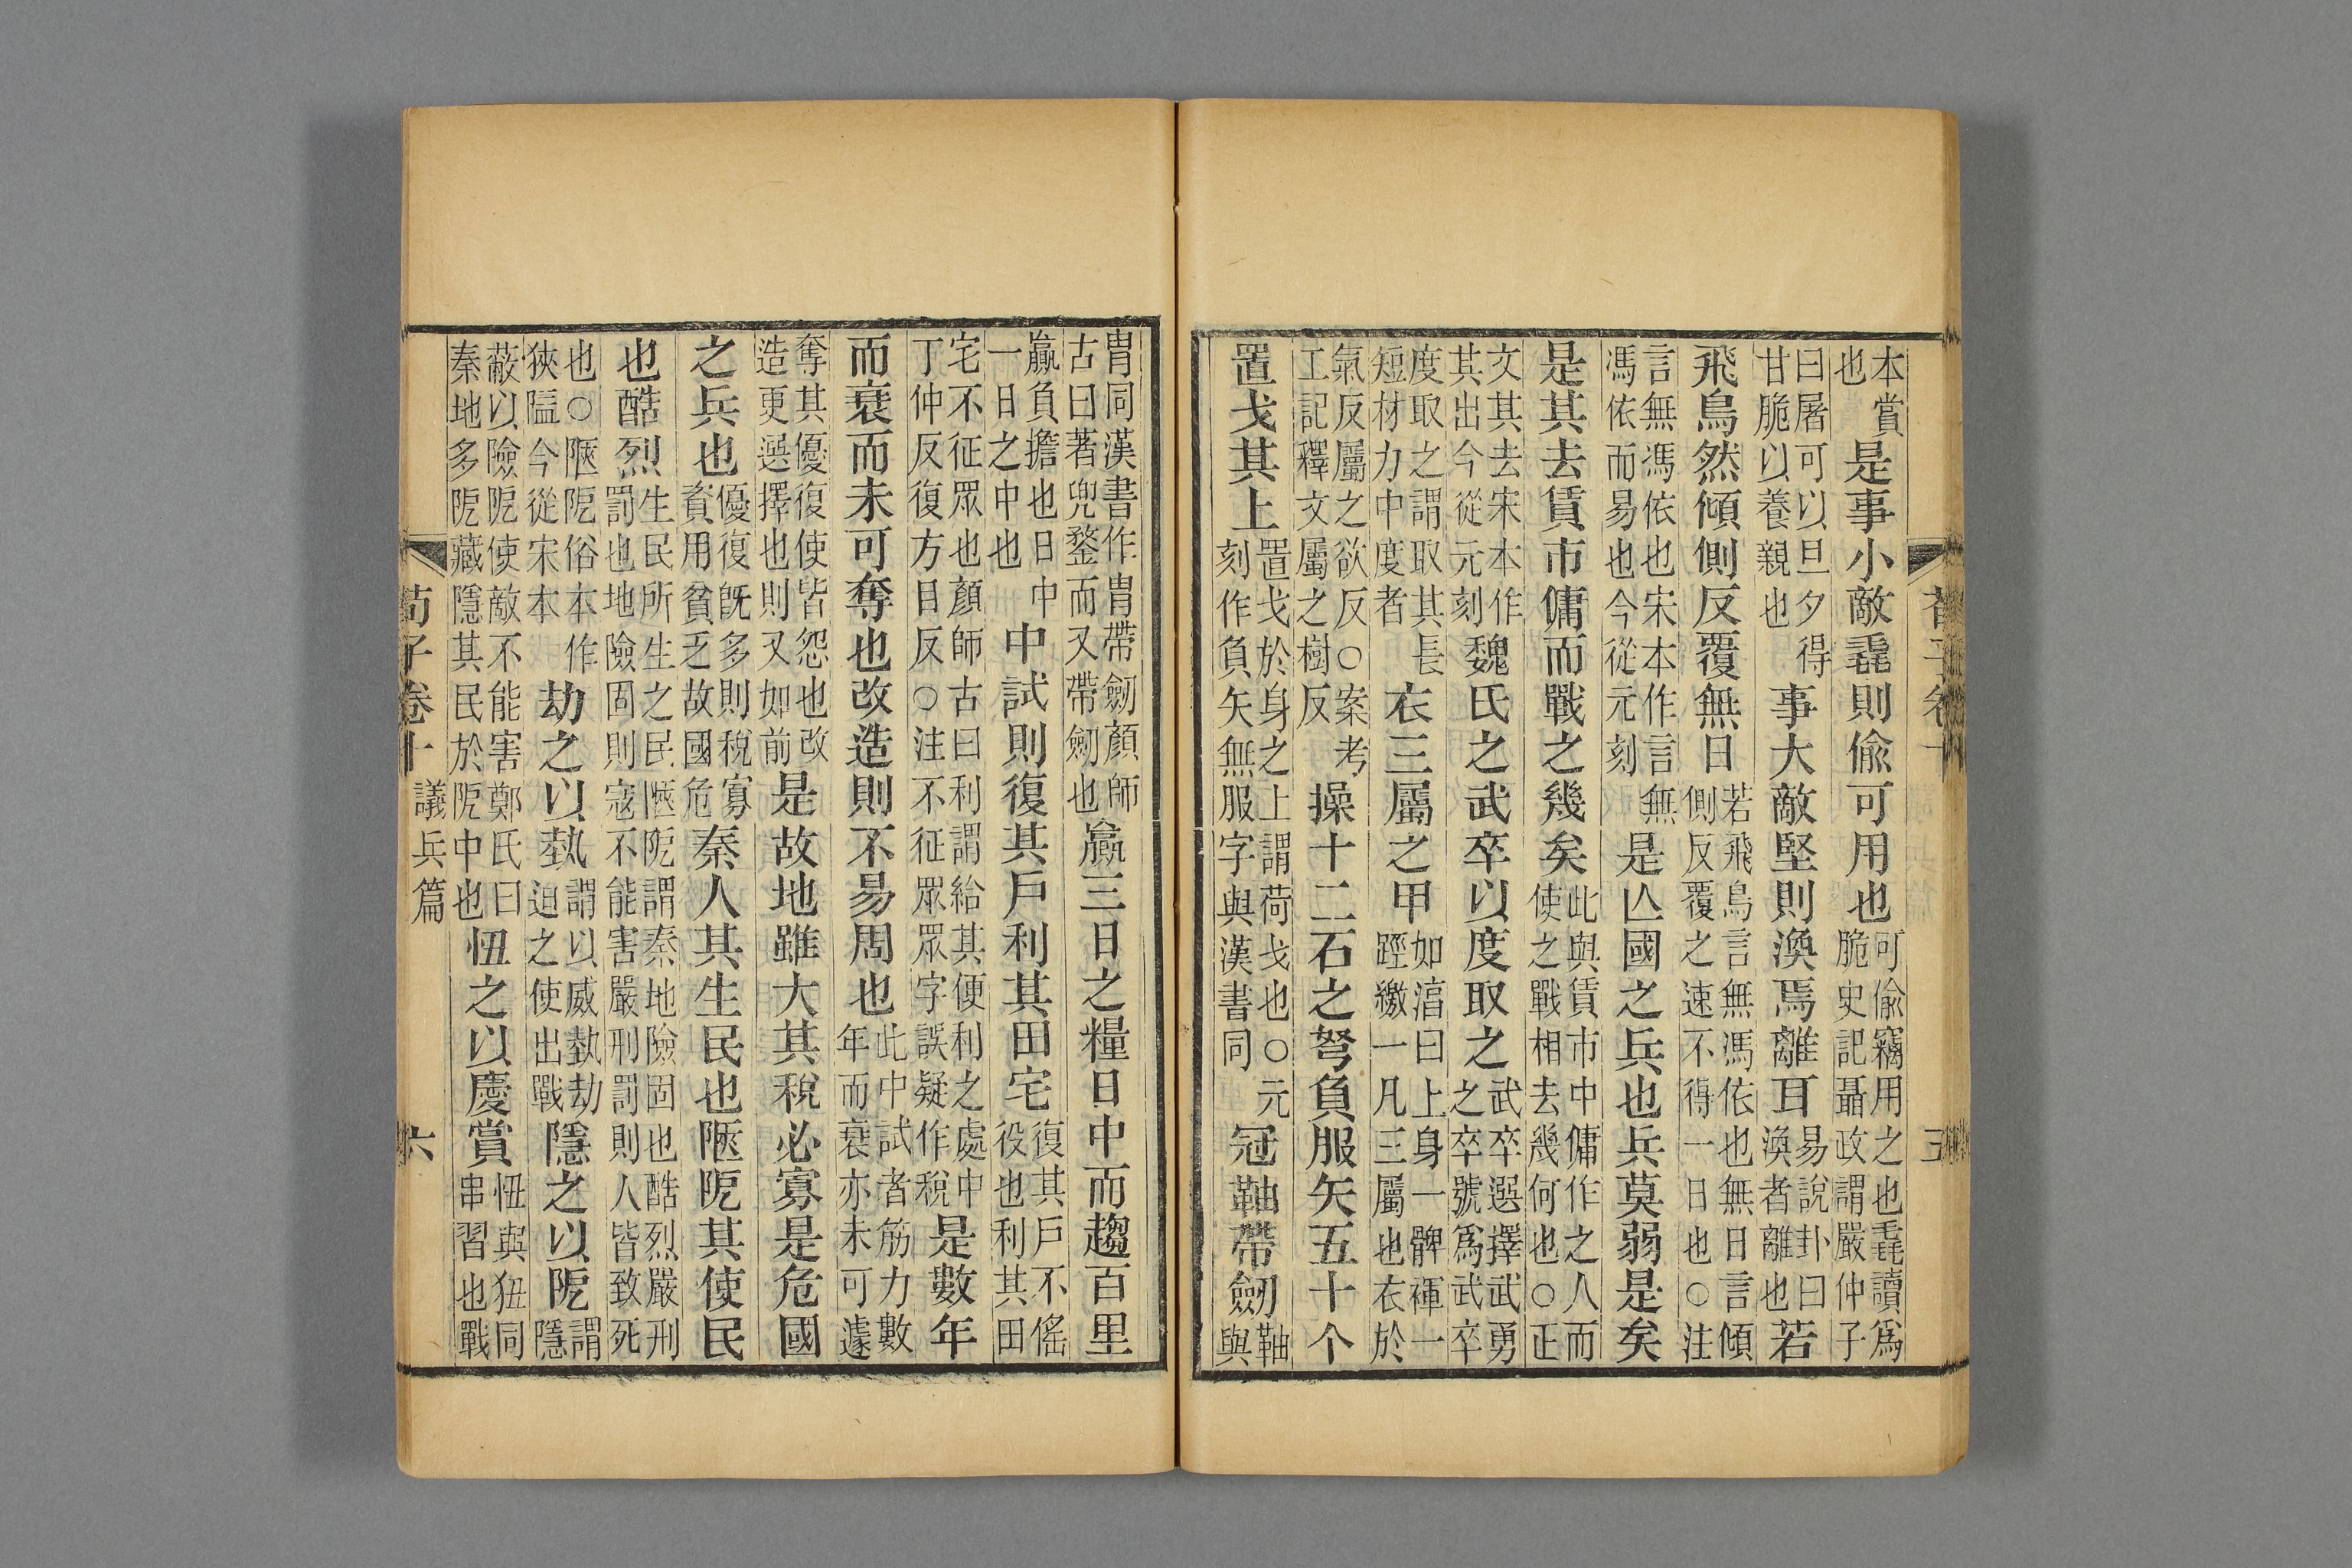 本賞也是事小敵毳則偷可用也可偷竊用之也毳讀爲脆史記聶政謂嚴仲子
曰屠可以旦夕得甘脆以養親也事大敵堅則渙焉離耳易說卦曰渙者離也若
飛鳥然傾側反覆無日若飛鳥言無馮依也無日言傾側反覆之速不得一日也○注
言無馮依也宋本作言無馮依而易也今從元刻是亾國之兵也兵莫弱是矣
是其去賃市傭而戰之幾矣此與賃市中傭作之人而使之戰相去幾何也○正
文其去宋本作其出今從元刻魏氏之武卒以度取之武卒選擇武勇之卒號爲武卒
度取之謂取其長短材力中度者衣三屬之甲如淳曰上身一髀褌一踁繳一凡三屬也衣於
氣反屬之欲反○案考工記釋文屬之樹反操十二石之弩負服矢五十个
置戈其上置戈於身之上謂荷戈也○元刻作負矢無服字與漢書同冠䩜帶劒䩜與
冑同漢書作冑帶劒顏師古曰著兜鍪而又帶劒也贏三日之糧日中而趨百里
贏負擔也日中一日之中也中試則復其戶利其田宅復其戶不傜役也利其田
宅不征眾也顏師古曰利謂給其便利之處中丁仲反復方目反○注不征眾眾字誤疑作稅是數年
而衰而未可奪也改造則不易周也此中試者筋力數年而衰亦未可遽
奪其優復使皆怨也改造更選擇也則又如前是故地雖大其稅必寡是危國
之兵也優復旣多則稅寡資用貧乏故國危秦人其生民也陿阸其使民
也酷烈生民所生之民陿阸謂秦地險固也酷烈嚴刑罰也地險固則寇不能害嚴刑罰則人皆致死
也○陿阸俗本作狹隘今從宋本劫之以埶謂以威埶劫迫之使出戰隱之以阸謂隱
蔽以險阸使敵不能害鄭氏曰秦地多阸藏隱其民於阸中也忸之以慶賞忸與狃同串習也戰
荀子卷十 議兵篇 六